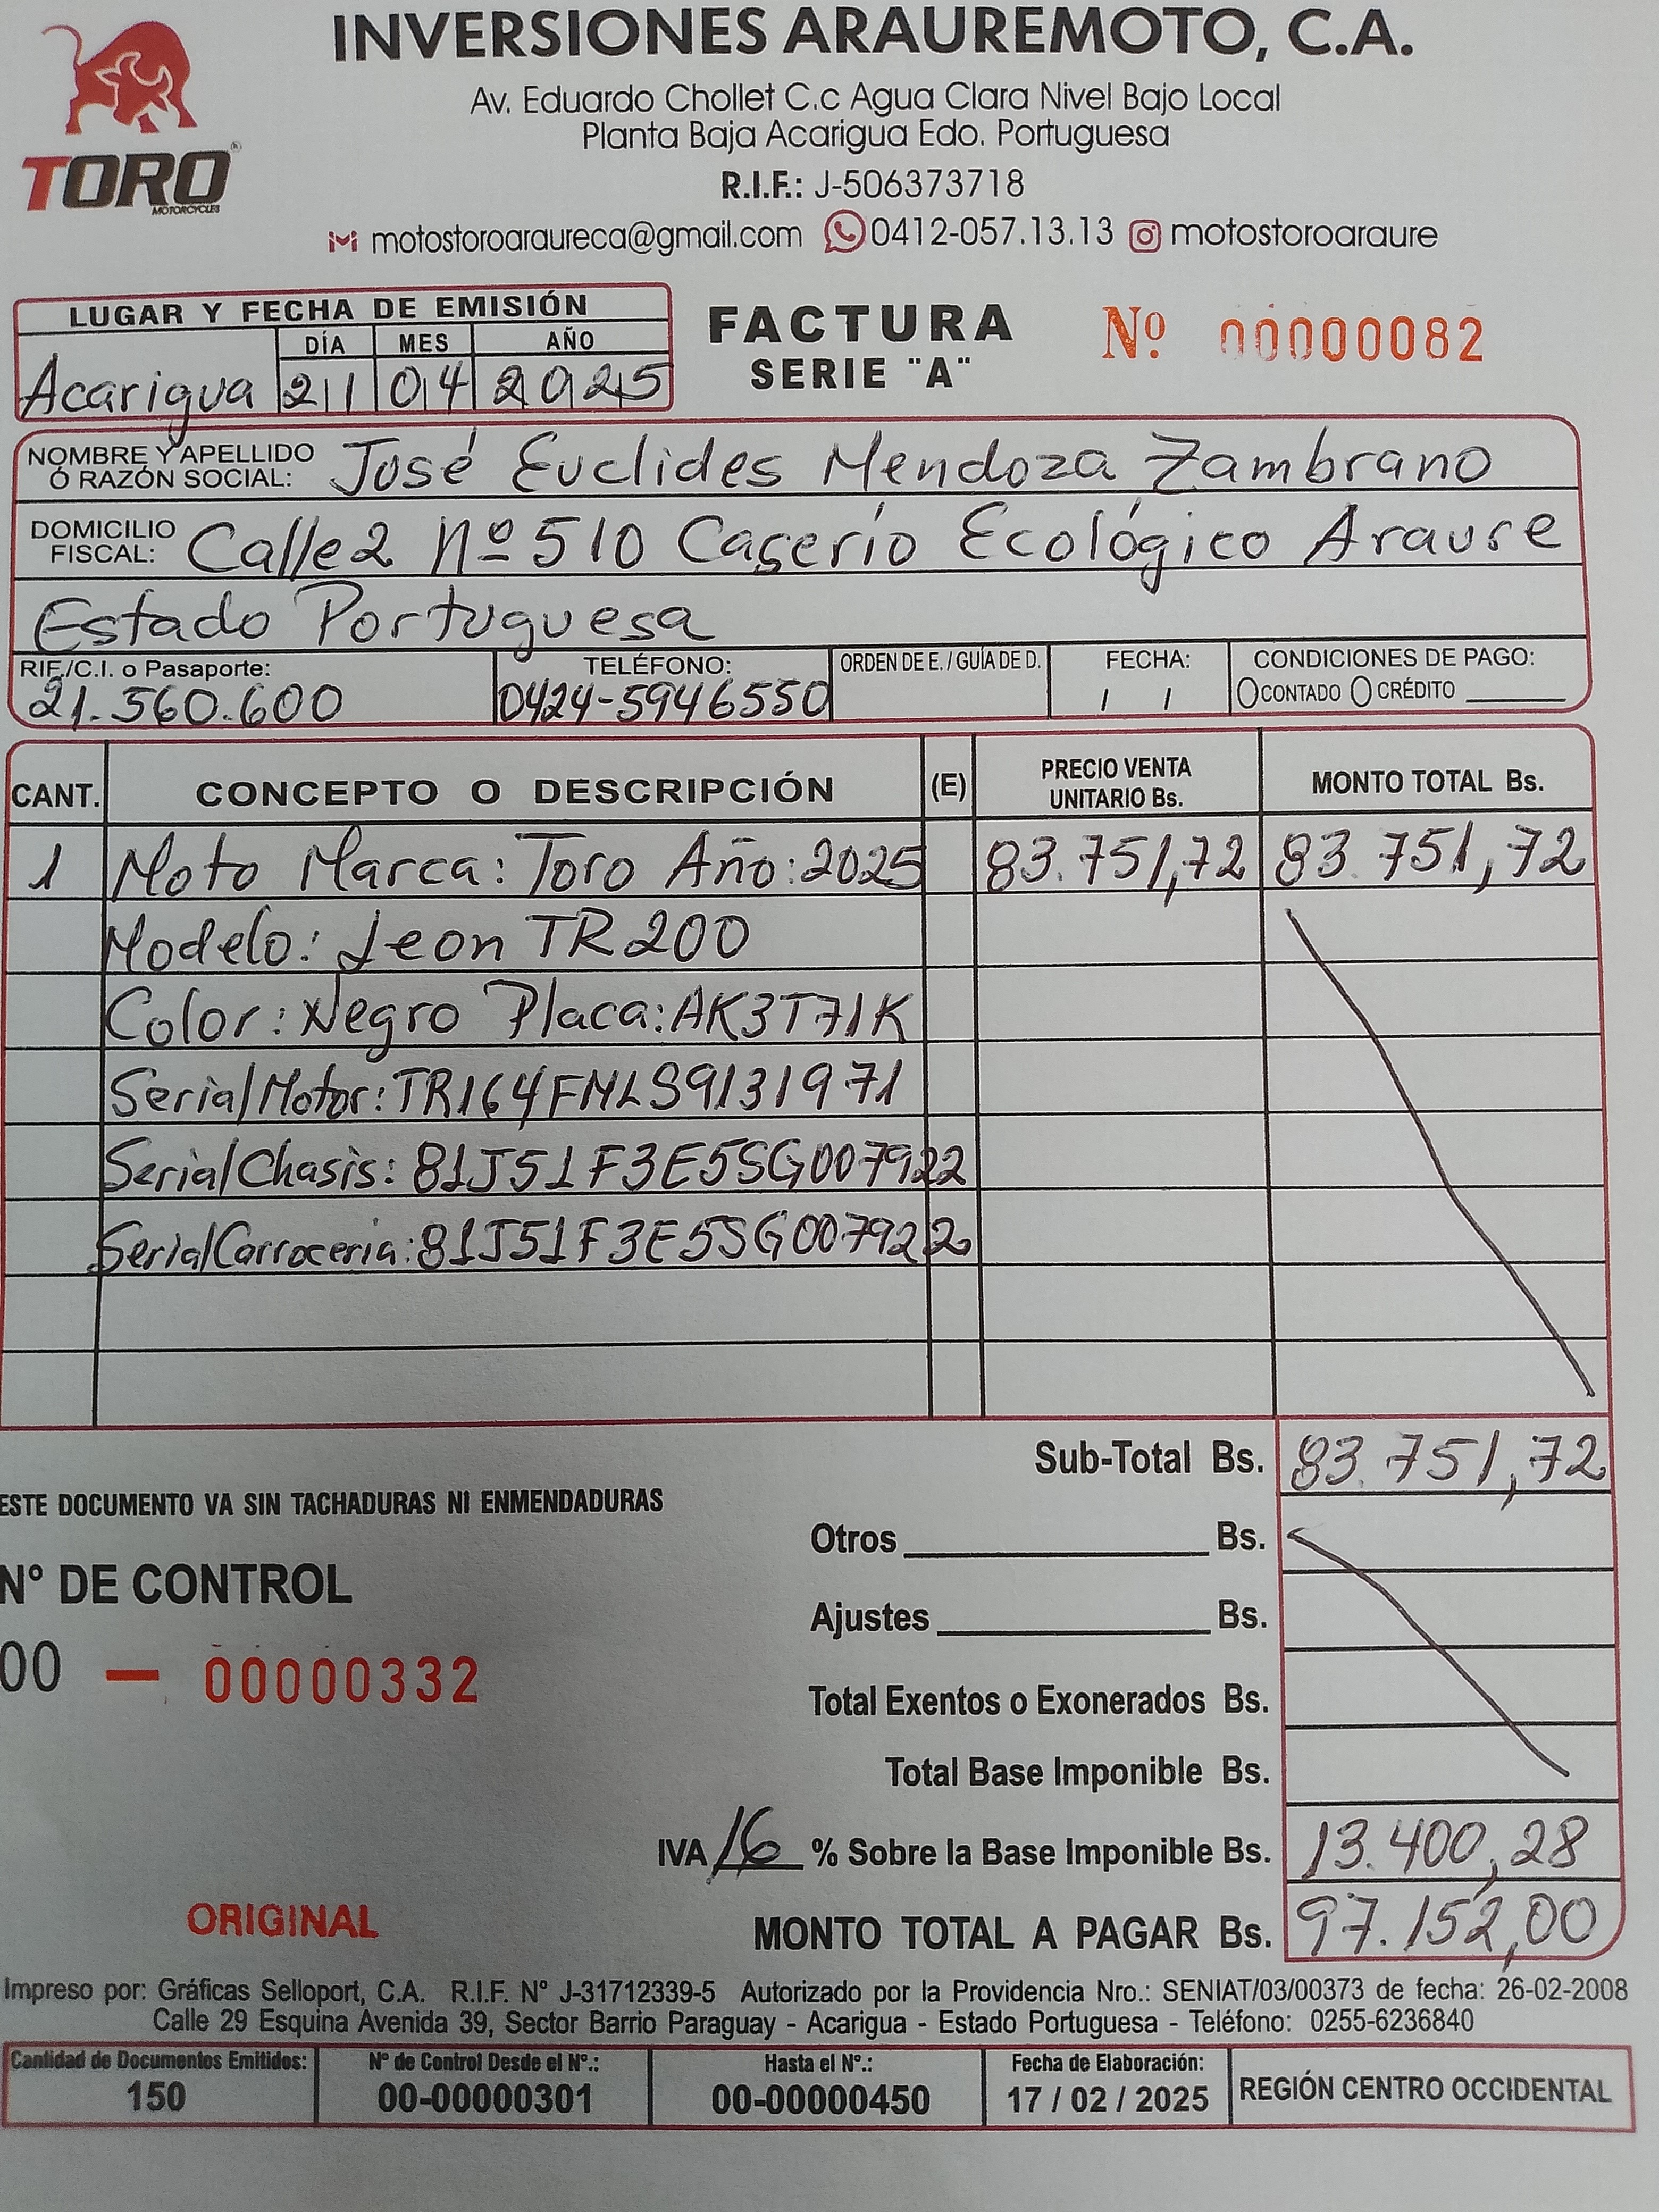 INVERSIONES ARAUREMOTO, C.A.
Av. Eduardo Chollet C.c Agua Clara Nivel Bajo Local
Planta Baja Acarigua Edo. Portuguesa
R.I.F.: J-506373718
motostoroaraureca@gmail.com 0412-057.13.13 motostoroaraure
TORO®
MOTORCYCLES
LUGAR Y FECHA DE EMISIÓN
DÍA MES AÑO
Acarigua 21 04 2025
FACTURA
SERIE "A"
Nº 00000082
NOMBRE Y APELLIDO
Ó RAZÓN SOCIAL: José Euclides Mendoza Zambrano
DOMICILIO
FISCAL: Calle 2 Nº 510 Caserío Ecológico Araure
Estado Portuguesa
RIF./C.I. o Pasaporte: TELÉFONO: ORDEN DE E. / GUÍA DE D. FECHA: CONDICIONES DE PAGO:
21.560.600 0424-5946550 / / CONTADO CRÉDITO
CANT. CONCEPTO O DESCRIPCIÓN (E) PRECIO VENTA UNITARIO Bs. MONTO TOTAL Bs.
1 Moto Marca: Toro Año: 2025 83.751,72 83.751,72
Modelo: Leon TR200
Color: Negro Placa: AK3T71K
Serial Motor: TR164FMLS9131971
Serial Chasis: 81J51F3E5SG007922
Serial Carroceria: 81J51F3E5SG007922
Sub-Total Bs. 83.751,72
ESTE DOCUMENTO VA SIN TACHADURAS NI ENMENDADURAS
Otros Bs.
N° DE CONTROL
Ajustes Bs.
00 — 00000332
Total Exentos o Exonerados Bs.
Total Base Imponible Bs.
IVA 16 % Sobre la Base Imponible Bs. 13.400,28
ORIGINAL
MONTO TOTAL A PAGAR Bs. 97.152,00
Impreso por: Gráficas Selloport, C.A. R.I.F. N° J-31712339-5 Autorizado por la Providencia Nro.: SENIAT/03/00373 de fecha: 26-02-2008
Calle 29 Esquina Avenida 39, Sector Barrio Paraguay - Acarigua - Estado Portuguesa - Teléfono: 0255-6236840
Cantidad de Documentos Emitidos: N° de Control Desde el N°.: Hasta el N°.: Fecha de Elaboración: REGIÓN CENTRO OCCIDENTAL
150 00-00000301 00-00000450 17 / 02 / 2025